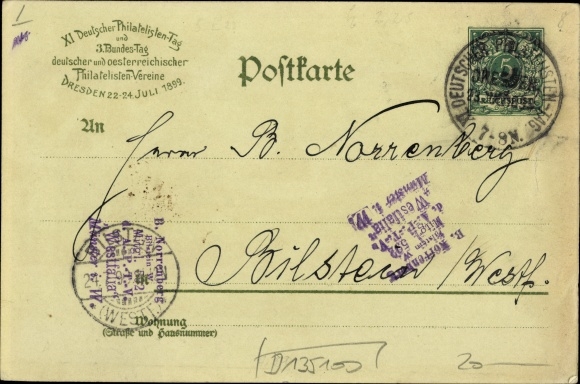 XI Deutscher Philatelisten-Tag
und
3. Bundes-Tag
deutscher und oesterreichischer
Philatelisten-Vereine
DRESDEN 22-24. JULI 1899.
Postkarte
5
XI. DEUTSCHER PHILATELISTEN-TAG
DRESDEN
7-8N.
An
Herrn B. Norrenberg
B. Norrenberg
Münster i. W.
B. Norrenberg
Münster i. W.
in
Bilstein /Westf.
(WESTF.)
Wohnung
(Straße und Hausnummer)
D135100
20—